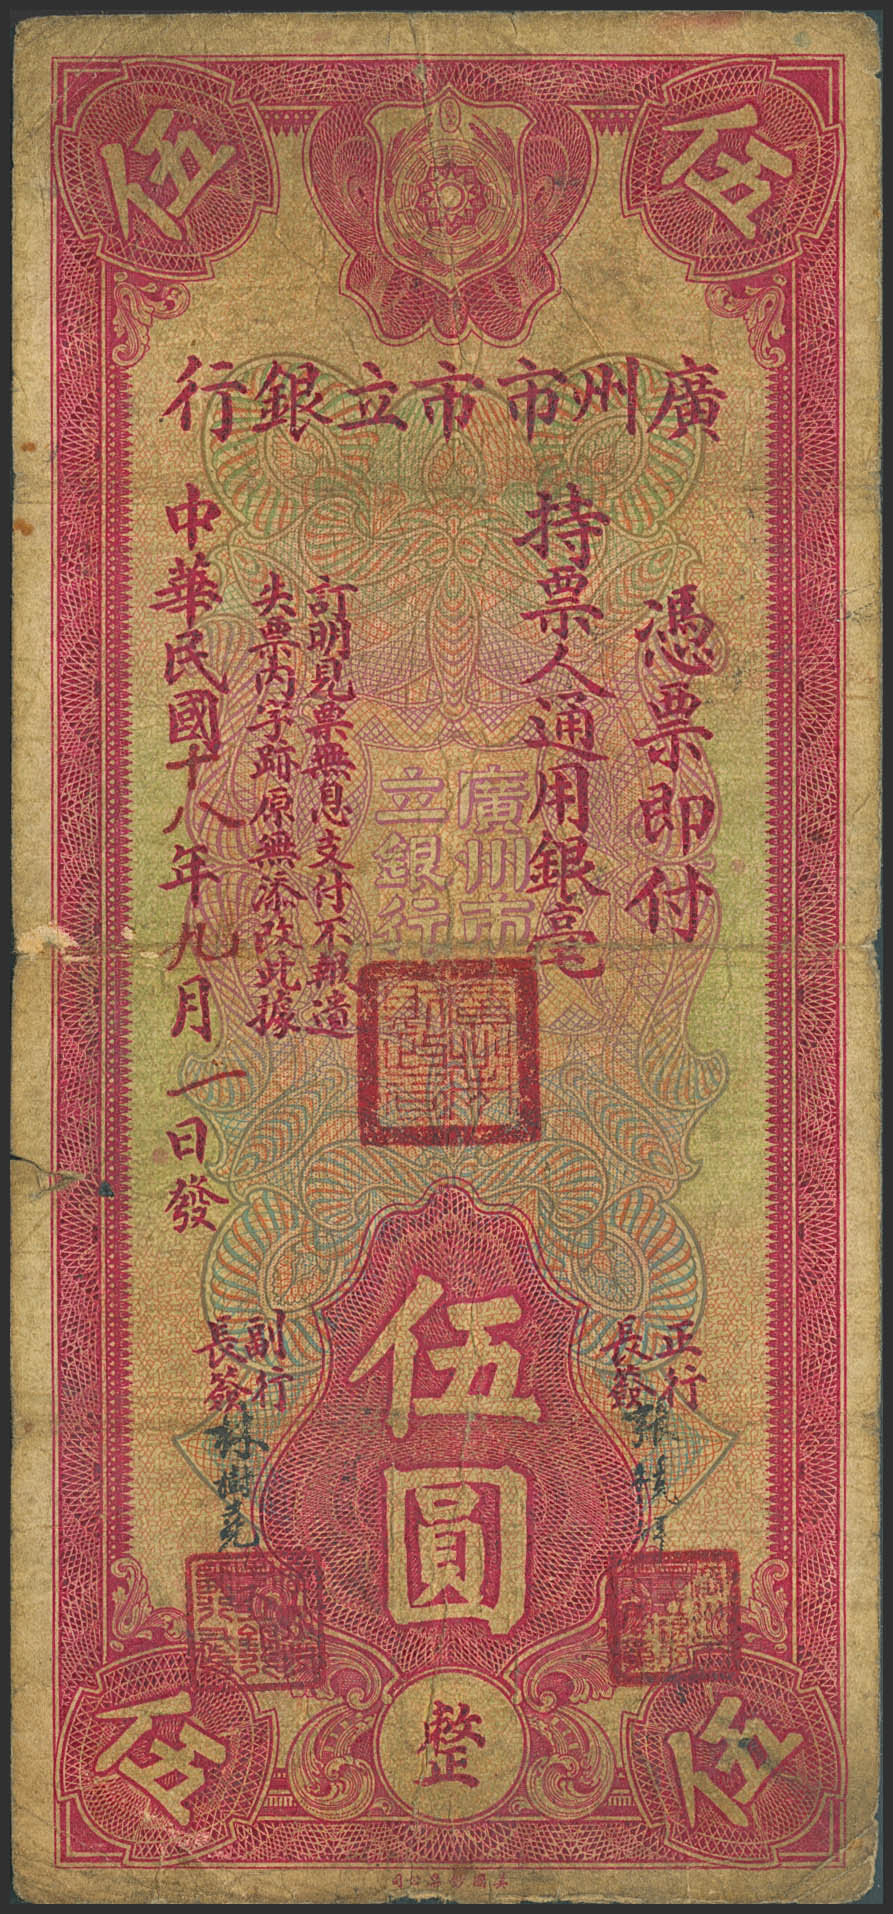 伍
伍
廣州市市立銀行
憑票即付
持票人通用銀毫
廣州市
立銀行
訂明見票無息支付不報遺
失票內字跡原無添改此據
中華民國十八年九月一日發
正行
長簽
張
副行
長簽
林樹堯
伍圓
整
伍
伍
美國鈔票公司